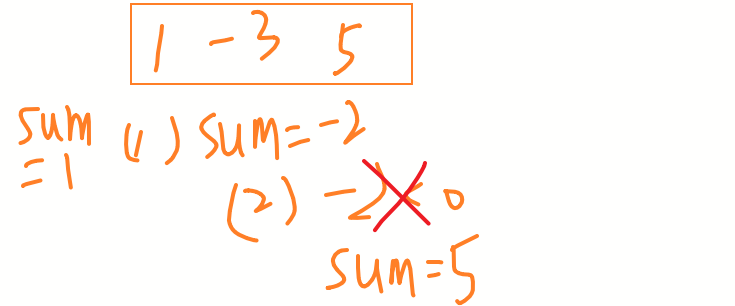 1 -3 5
sum (1) sum=-2
=1
(2) -2< 0
sum=5